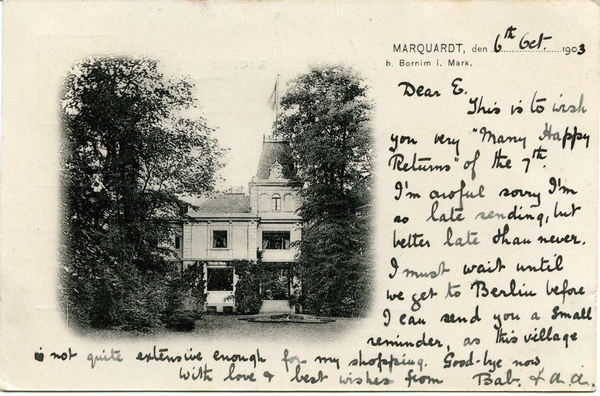 MARQUARDT, den 6th Oct. 1903
b. Bornim i. Mark.
Dear E.
This is to wish
you very "Many Happy
Returns" of the 7th.
I'm awful sorry I'm
so late sending, but
better late than never.
I must wait until
we get to Berlin before
I can send you a small
reminder, as this village
is not quite extensive enough for my shopping. Good-bye now
with love & best wishes from Bab. & A.A.